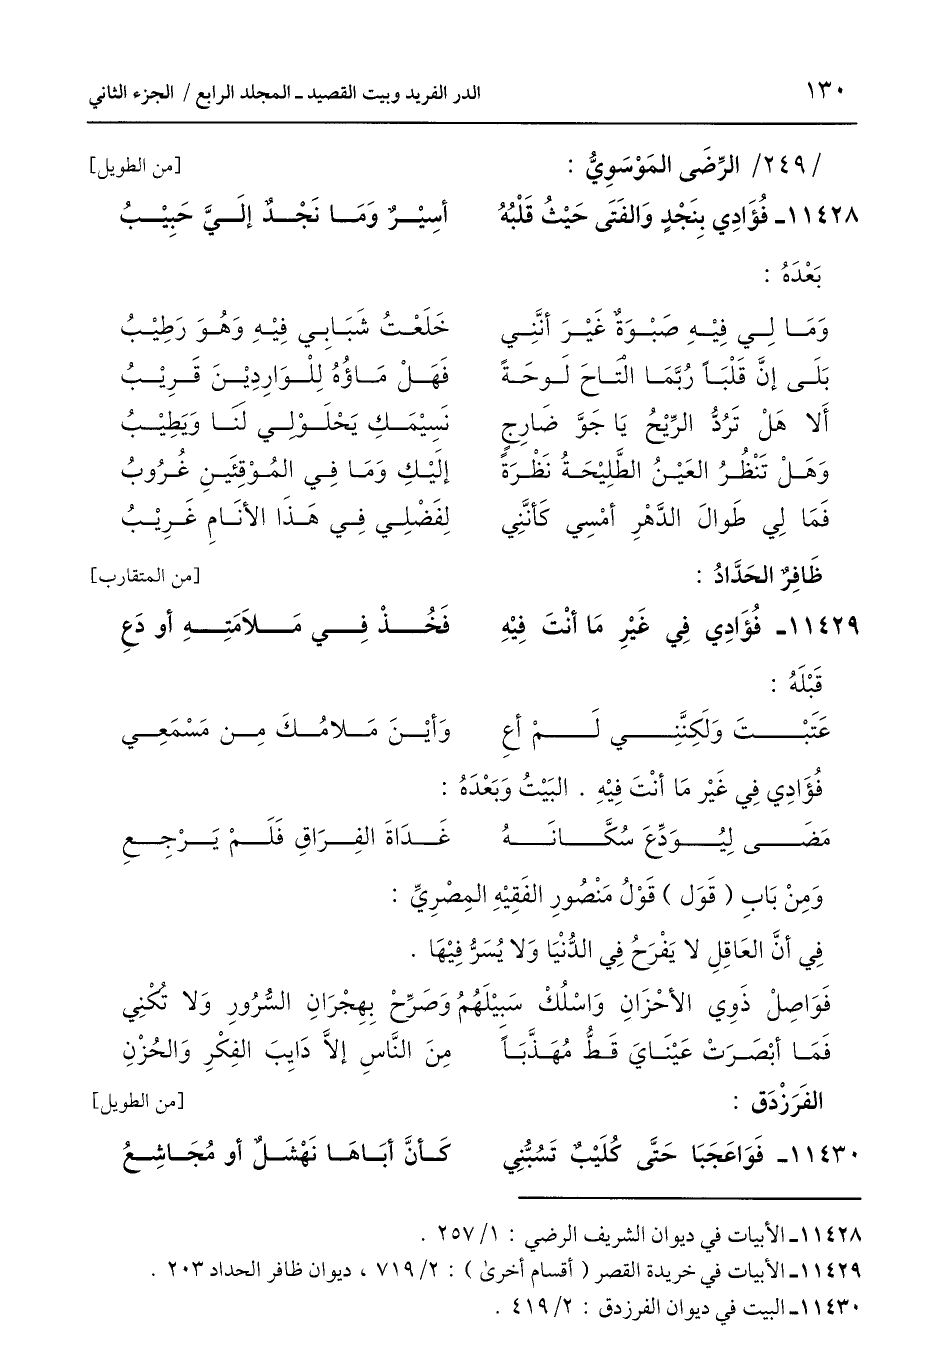 ١٣٠ الدر الفريد وبيت القصيد ـ المجلد الرابع / الجزء الثاني
/ ٢٤٩/ الرِّضَى المَوْسَوِيُّ : [من الطويل]
١١٤٢٨ـ فُؤَادِي بِنَجْدٍ وَالفَتَى حَيْثُ قَلْبُهُ أسِيْرٌ وَمَا نَجْدٌ إلَيَّ حَبِيْبُ
بَعْدَهُ :
وَمَا لِي فِيْهِ صَبْوَةٌ غَيْرَ أنَّنِي خَلَعْتُ شَبَابِي فِيْهِ وَهُوَ رَطِيْبُ
بَلَى إنَّ قَلْبَاً رُبَّمَا الْتَاحَ لَوحَةً فَهَلْ مَاؤُهُ لِلْوَارِدِيْنَ قَرِيْبُ
ألَا هَلْ تَرُدُّ الرِّيْحُ يَا جَوَّ ضَارِجٍ نَسِيْمَكِ يَحْلَوْلِي لَنَا وَيَطِيْبُ
وَهَلْ تَنْظُرُ العَيْنُ الطَّلِيْحَةُ نَظْرَةً إلَيْكِ وَمَا فِي المُوْقَيْنِ غُرُوبُ
فَمَا لِي طَوالَ الدَّهْرِ أمْسِي كَأنَّنِي لِفَضْلِي فِي هَذَا الأنَامِ غَرِيْبُ
ظَافِرٌ الحَدَّادُ : [من المتقارب]
١١٤٢٩ـ فُؤَادِي فِي غَيْرِ مَا أنْتَ فِيْهِ فَخُذْ فِي مَلاَمَتِهِ أو دَعِ
قَبْلَهُ :
عَتَبْتَ وَلَكِنَّنِي لَمْ أعِ وَأيْنَ مَلامُكَ مِن مَسْمَعِي
فُؤَادِي فِي غَيْر مَا أنْتَ فِيْهِ . البَيْتُ وَبَعْدَهُ :
مَضَى لِيُوَدِّعَ سُكَّانَهُ غَدَاةَ الفِرَاقِ فَلَمْ يَرْجِعِ
وَمِنْ بَابِ ( قَول ) قَوْلُ مَنْصُورِ الفَقِيْهِ المِصْرِيِّ :
فِي أنَّ العَاقِلِ لا يَفْرَحُ فِي الدُّنْيَا وَلا يُسَرُّ فِيْهَا .
فَوَاصِلْ ذَوِي الأحْزَانِ وَاسْلُكْ سَبِيْلَهُمُ وَصَرِّحْ بِهِجْرَانِ السُّرُورِ وَلا تُكْنِي
فَمَا أبْصَرَتْ عَيْنَايَ قَطُّ مُهَذَّبَاً مِنَ النَّاسِ إلاَّ دَايِبَ الفِكْرِ وَالحُزْنِ
الفَرَزْدَق : [من الطويل]
١١٤٣٠ـ فَوَاعَجَبَا حَتَّى كُلَيْبٌ تَسُبُّنِي كَأنَّ أبَاهَا نَهْشَلٌ أو مُجَاشِعُ
١١٤٢٨ـ الأبيات في ديوان الشريف الرضي : ٢٥٧/١ .
١١٤٢٩ـ الأبيات في خريدة القصر ( أقسام أخرىٰ ) : ٧١٩/٢ ، ديوان ظافر الحداد ٢٠٣ .
١١٤٣٠ـ البيت في ديوان الفرزدق : ٤١٩/٢ .